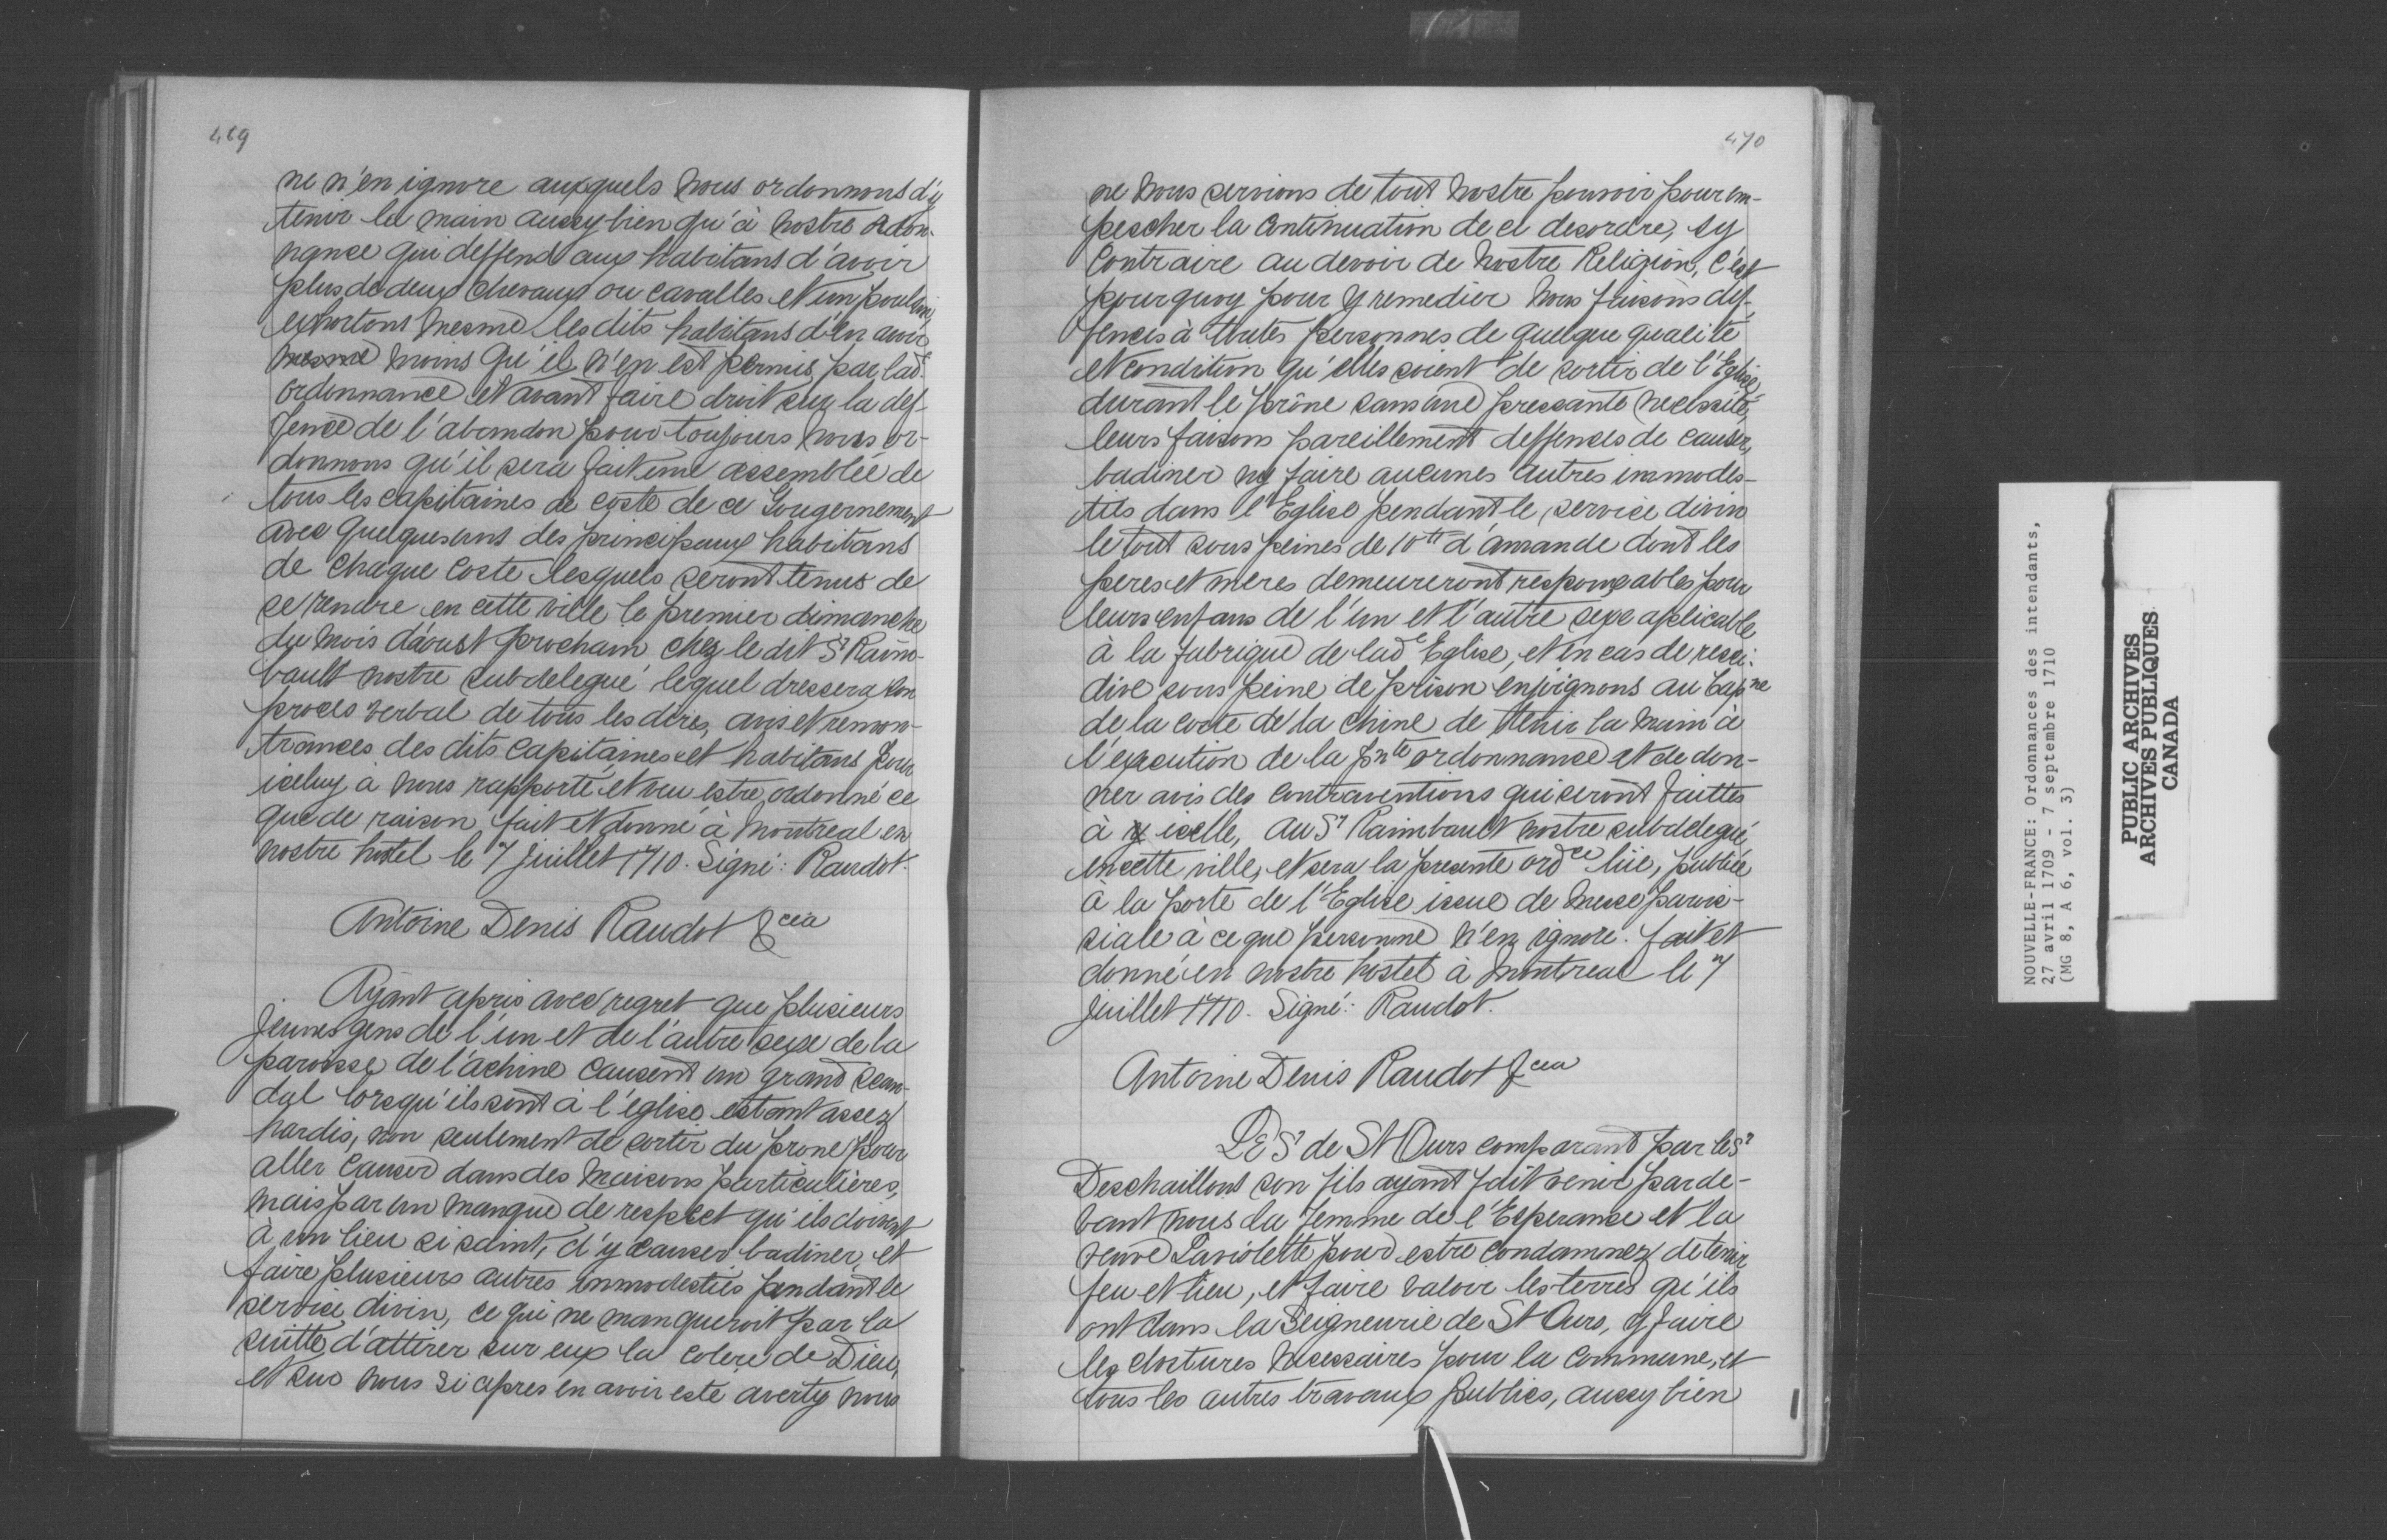 469
ne n'en ignore auxquels nous ordonnons d'y
tenir la main aussy bien qu'à nostre ordon-
nance qui deffend aux habitans d'avoir
plus de deux chevaux ou cavalles et un poulin,
exhortons mesme les dits habitans d'en avoir
mesme moins qu'il n'en est permis par lad.
ordonnance et avant faire droit sur la def-
fence de l'abandon pour toujours nous or-
donnons qu'il sera fait une assemblée de
tous les capitaines de coste de ce Gouvernement
avec quelques uns des principaux habitans
de chaque coste lesquels seront tenus de
se rendre en cette ville le premier dimanche
du mois d'aoust prochain chez le dit Sr Raim-
bault nostre subdelegué lequel dressera son
proces verbal de tous les dires, avis et remon-
trances des dits capitaines et habitans pour
iceluy à nous rapporté et veu estre ordonné ce
que de raison fait et donné à Montreal en
nostre hostel le 7 Juillet 1710. Signé: Raudot.
Antoine Denis Raudot &cea
Ayant apris avec regret que plusieurs
jeunes gens de l'un et de l'autre sexe de la
paroisse de l'achine causent un grand scan-
dal lorsqu'ils sont à l'eglise estant assez
hardis, non seulement de sortir du prone pour
aller causer dans des maisons particulières,
mais par un manque de respect qu'ils doivent
à un lieu si saint, d'y causer badiner, et
faire plusieurs autres immodesties pandant le
service divin, ce qui ne manqueroit par la
suitte d'attirer sur eux la colere de Dieu,
et sur nous si apres en avoir esté averty nous
470
ne nous servions de tout nostre pouvoir pour em-
pescher la continuation de ce desordre, sy
contraire au devoir de nostre Religion, c'est
pourquoy pour y remedier nous faisons def-
fences à toutes personnes de quelque qualité
et condition qu'elles soient de sortir de l'Eglise
durant le prône sans une pressante necessité,
leurs faisons pareillement deffences de causer,
badiner ny faire aucunes autres immodes-
ties dans l'Eglise pendant le service divin
le tout sous peines de 10tt d'amande dont les
peres et meres demeureront responsables pour
leurs enfans de l'un et l'autre sexe aplicable
à la fabrique de lade Eglise, et en cas de resci-
dive sous peine de prison enjoignons au Capne
de la coste de la chine de tenir la main à
l'execution de la pnte ordonnance et de don-
ner avis des contraventions qui seront faittes
à y icelle, au Sr Raimbault nostre subdelegué
en cette ville, et sera la presente ordce lüe, publiée
à la porte de l'Eglise issue de messe parois-
siale à ce que personne n'en ignore. fait et
donné en nostre hostel à Montreal le 7
Juillet 1710. Signé: Raudot.
Antoine Denis Raudot &cea
Le Sr de St Ours comparant par le Sr
Deschaillons son fils ayant fait venir parde-
vant nous la femme de l'Esperance et la
veuve Laviolette pour estre condamnez de tenir
feu et lieu, et faire valoir les terres qu'ils
ont dans la Seigneurie de St Ours, y faire
les clostures necessaires pour la commune, et
tous les autres travaux publics, aussy bien
NOUVELLE-FRANCE: Ordonnances des intendants,
27 avril 1709 - 7 septembre 1710
(MG 8, A 6, vol. 3)
PUBLIC ARCHIVES
ARCHIVES PUBLIQUES
CANADA